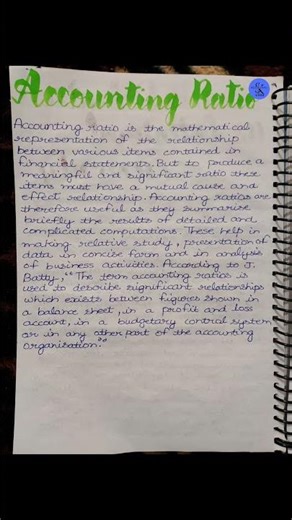 Accounting Ratio
Accounting ratio is the mathematical
representation of the relationship
between various items contained in
financial statements. But to produce a
meaningful and significant ratio these
items must have a mutual cause and
effect relationship. Accounting ratios are
therefore useful as they summarise
briefly the results of detailed and
complicated computations. These help in
making relative study, presentation of
data in concise form and in analysis
of business activities. According to J.
Batty, "The term accounting ratios is
used to describe significant relationships
which exists between figures shown in
a balance sheet, in a profit and loss
account, in a budgetary control system
or in any other part of the accounting
organisation."